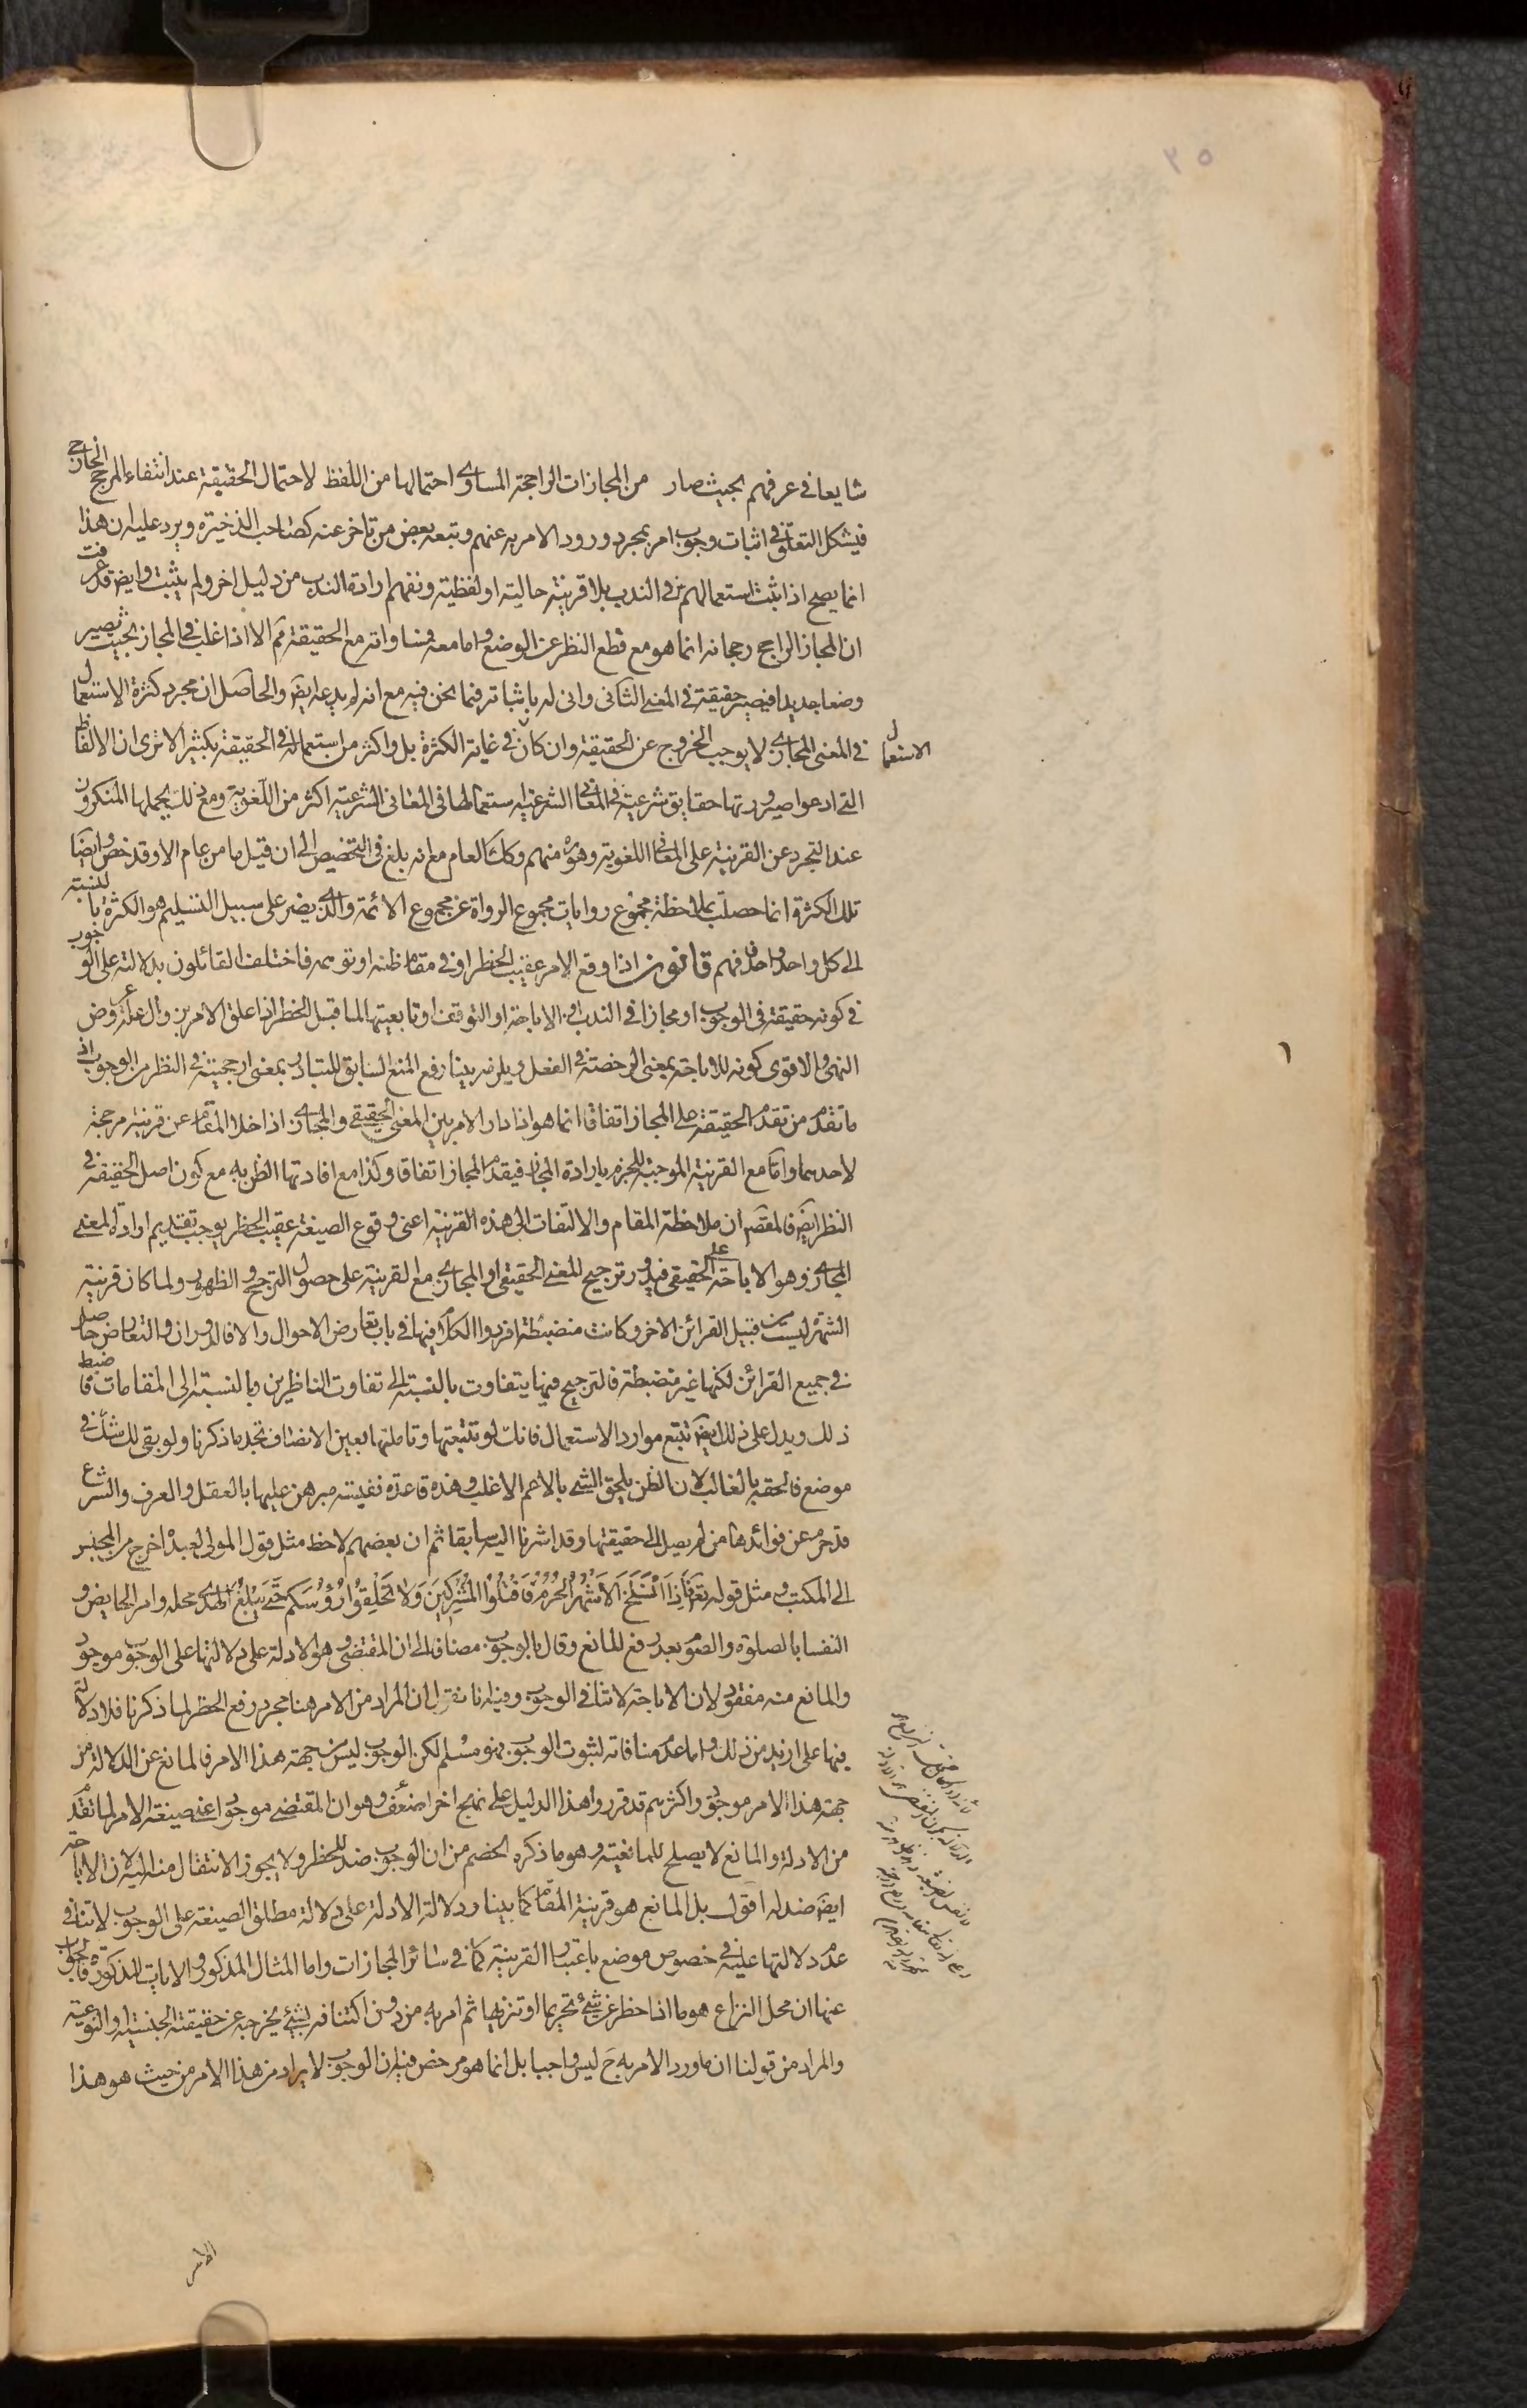 ٣٥
شايعا في عرفهم بحيث صار من المجازات الراجحة المساوي احتمالها من اللفظ لاحتمال الحقيقة عند انتفاء المرجح الخارجي
فيشكل التعلق في اثبات وجوب امر بمجرد ورود الامر به عنهم وتبعه بعض من تاخر عنه كصاحب الذخيرة ويرد عليه ان هذا
انما يصح اذا ثبت استعمالهم في الندب بلا قرينة حالية او لفظية ونفهم ارادة الندب من دليل اخر ولم يثبت وايضا قد عرفت
ان المجاز الراجح رجحانه انما هو مع قطع النظر عن الوضع واما معه فمساواته مع الحقيقة مم الا اذا غلب في المجاز بحيث يصير
وضعا جديدا فيصير حقيقة في المعنى الثاني واني له باثباته فيما نحن فيه مع انه لم يدعه ايضا والحاصل ان مجرد كثرة الاستعمال
الاستعمال
في المعنى المجازي لا يوجب الخروج عن الحقيقة وان كان في غاية الكثرة بل واكثر من استعماله في الحقيقة بكثير الا ترى ان الالفاظ
التي ادعوا صيرورتها حقايق شرعية في المعاني الشرعية استعمالها في المعاني الشرعية اكثر من اللغوية ومع ذلك يحملها المنكرون
عند التجرد عن القرينة على المعاني اللغوية وهو ره منهم وكك العام مع انه بلغ في التخصيص الى ان قيل ما من عام الا وقد خص وايضا
تلك الكثرة انما حصلت بملاحظة مجموع روايات مجموع الرواة عن مجموع الائمة والذي يضر على سبيل التسليم هو الكثرة بالنسبة
الى كل واحد واحد فافهم قانون اذا وقع الامر عقيب الحظر او في مقام ظنه او توهمه فاختلف القائلون بدلالته على الوجوب
في كونه حقيقة في الوجوب او مجازا في الندب او الاباحة او التوقف او تابعيتها لما قبل الحظر اذا علق الامر بزوال علة عروض
النهي والاقوى كونه للاباحة بمعنى الرخصة في الفعل ويلزمه بينا رفع المنع السابق للتبادر بمعنى ارجحيته في النظر من الوجوب اذ
ما تقدم من تقدم الحقيقة على المجاز اتفاقا انما هو اذا دار الامر بين المعنى الحقيقي والمجازي اذا خلا المقام عن قرينة مرجحة
لاحدهما واما مع القرينة الموجبة للجزم بارادة المجاز فيقدم المجاز اتفاقا وكذا مع افادتها الظن به مع كون اصل الحقيقة في
النظر ايضا فالمقصد ان ملاحظة المقام والالتفات الى هذه القرينة اعني وقوع الصيغة عقيب الحظر يوجب تقديم ارادة المعنى
المجازي وهو الاباحة على الحقيقي فيدور ترجيح المعنى الحقيقي او المجازي مع القرينة على حصول الترجيح والظهور ولما كان قرينة
الشهرة ليست من قبيل القرائن الاخر وكانت منضبطة افردوا الكلام فيها في باب تعارض الاحوال والا فالدوران والتعارض حاصل
في جميع القرائن لكنها غير منضبطة فالترجيح فيها يتفاوت بالنسبة الى تفاوت الناظرين وبالنسبة الى المقامات فاضبط
ذلك ويدل على ذلك ايضا تتبع موارد الاستعمال فانك لو تتبعتها وتاملتها بعين الانصاف تجد ما ذكرنا ولو بقي لك شك في
موضع فالحقه بالغالب لان الظن يلحق الشي بالاعم الاغلب وهذه قاعدة نفيسة مبرهن عليها بالعقل والعرف والشرع
قد حرم عن فوائدها من لم يصل الى حقيقتها وقد اشرنا اليه سابقا ثم ان بعضهم لاحظ مثل قول المولى لعبده اخرج من المحبس
الى المكتب ومثل قوله تع فَاِذَا انْسَلَخَ الْاَشْهُرُ الْحُرُمُ فَاقْتُلُوا الْمُشْرِكِينَ وَلَا تَحْلِقُوا رُؤُسَكُم حَتّى يَبْلُغَ الهدي محله وامر الحايض و
النفسا بالصلوة والصوم بعد رفع المانع وقال بالوجوب مضافا الى ان المقتضي وهو الادلة على دلالتها على الوجوب موجود
والمانع منه مفقود لان الاباحة لا تنافي الوجوب وفيه انا نقول ان المراد من الامر هنا مجرد رفع الحظر لما ذكرنا فلا دلالة
فيها على ازيد من ذلك واما عدم منافاته لثبوت الوجوب فهو مسلم لكن الوجوب ليس من جهة هذا الامر فالمانع عن الدلالة من
جهة هذا الامر موجود واكثرهم قد قرروا هذا الدليل على نهج اخر اضعف وهو ان المقتضي موجود اعني صيغة الامر لما تقدم
من الادلة والمانع لا يصلح للمانعية وهو ما ذكره الخصم من ان الوجوب ضد للحظر ولا يجوز الانتقال منه اليه لان الاباحة
ايضا ضد له اقول بل المانع هو قرينة المقام كما بينا ودلالة الادلة على دلالة مطلق الصيغة على الوجوب لا تنافي
عدم دلالتها عليه في خصوص موضع باعتبار القرينة كما في سائر المجازات واما المثال المذكور والايات المذكورة فالجواب
عنها ان محل النزاع هو ما اذا حظر عن شيء تحريما او تنزيها ثم امر به من دون اكتنافه بشيء يخرجه عن حقيقته الجنسية والنوعية
والمراد من قولنا ان ما ورد الامر به ح ليس واجبا بل انما هو مرخص فيه ان الوجوب لا يراد من هذا الامر من حيث هو هذا
الامر